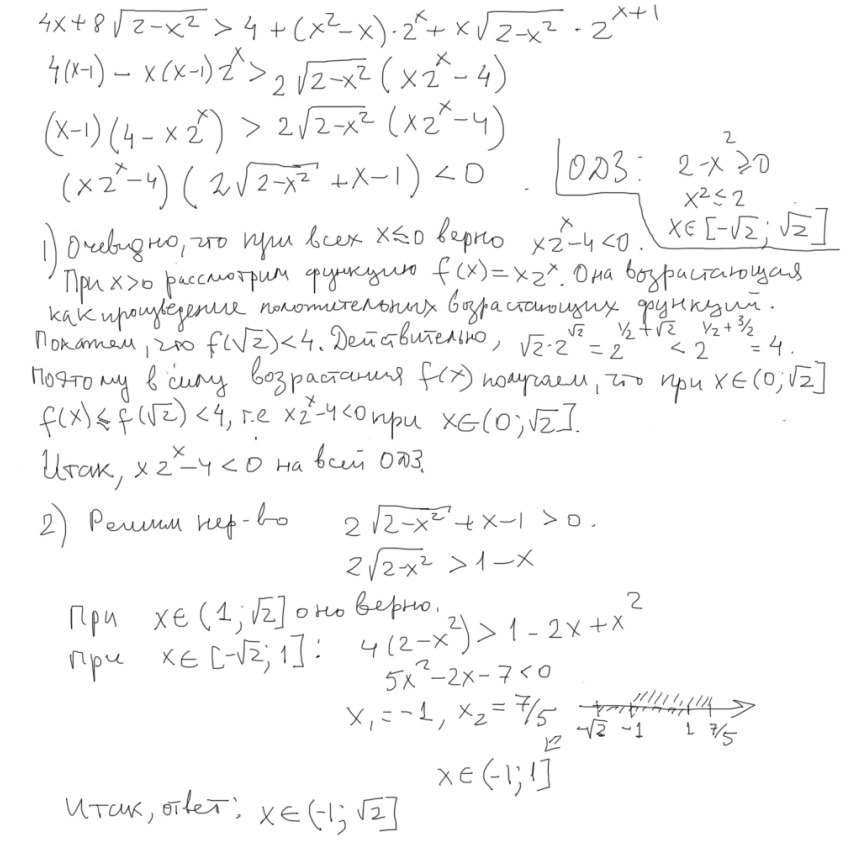 4x+8√(2-x²) > 4 + (x²-x)·2^x + x√(2-x²) · 2^(x+1)
4(x-1) - x(x-1)2^x > 2√(2-x²) (x2^x - 4)
(x-1)(4 - x2^x) > 2√(2-x²) (x2^x - 4)
(x2^x - 4)(2√(2-x²) + x - 1) < 0.
ОДЗ: 2-x² ≥ 0
x² ≤ 2
x∈[-√2; √2]
1) Очевидно, что при всех x≤0 верно x2^x-4<0.
При x>0 рассмотрим функцию f(x)=x2^x. Она возрастающая
как произведение положительных возрастающих функций.
Покажем, что f(√2)<4. Действительно, √2·2^√2 = 2^(1/2+√2) < 2^(1/2+3/2) = 4.
Поэтому в силу возрастания f(x) получаем, что при x∈(0;√2]
f(x)≤f(√2)<4, т.е x2^x-4<0 при x∈(0;√2].
Итак, x2^x-4<0 на всей ОДЗ.
2) Решим нер-во 2√(2-x²) + x-1 > 0.
2√(2-x²) > 1-x
При x∈(1;√2] оно верно.
при x∈[-√2;1]: 4(2-x²) > 1-2x+x²
5x²-2x-7<0
x₁=-1, x₂=7/5
-√2 -1 1 7/5
x∈(-1;1]
Итак, ответ: x∈(-1;√2]